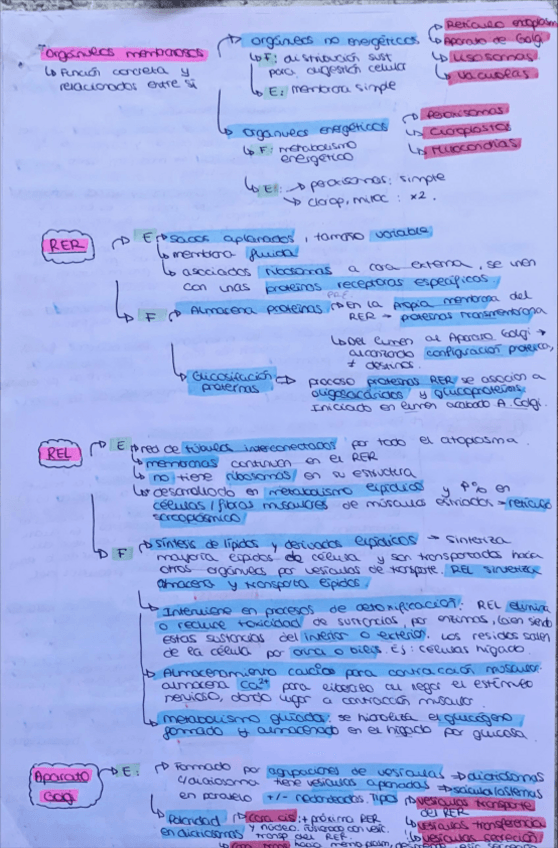 orgánulos membranosos
↳ Función concreta y
relacionados entre sí
orgánulos no energéticos
↳ F: distribución sust
para digestión celular
↳ E: membrana simple
Retículo endoplasm
Aparato de Golgi
Lisosomas
Vacuolas
orgánulos energéticos
↳ F: metabolismo
energético
↳ E: → peroxisomas: simple
→ clorop, mitoc: x2.
Peroxisomas
Cloroplastos
Mitocondrias
RER
E → sacos aplanados, tamaño variable
↳ membrana fluida
↳ asociados ribosomas a cara externa, se unen
con unas proteínas receptoras específicas.
F → Almacena proteínas → En la propia membrana del
RER → proteínas transmembrana
↳ Del lumen al Aparato Golgi →
alcanzando configuración proteica,
≠ destinos.
↳ Glucosilación ⇨ proceso proteínas RER se asocian a
proteínas oligosacáridos y glucoproteínas.
Iniciado en lumen acabado A. Golgi.
REL
E → red de túbulos interconectados por todo el citoplasma.
↳ membranas continuan en el RER
↳ no tiene ribosomas en su estructura
↳ desarrollado en metabolismo lipídicos y en
células/fibras musculares de músculos estriados → retículo
sarcoplásmico
F → síntesis de lípidos y derivados lipídicos → sintetiza
mayoría lípidos de célula y son transportados hacia
otros orgánulos por vesículas de trasporte. REL sintetiza
almacena y transporta lípidos.
↳ Interviene en procesos de detoxificación: REL elimina
o reduce toxicidad de sustancias, por enzimas, bien sean
estas sustancias del interior o exterior. Los residuos salen
de la célula por orina o bilis. Ej: células hígado.
↳ Almacenamiento calcio para contracción muscular:
almacena Ca²⁺ para liberarlo al llegar el estímulo
nervioso, dando lugar a contracción muscular.
↳ metabolismo glúcido: se hidroliza el glucógeno,
formado y almacenado en el hígado por glucosa.
Aparato
Golgi
E: → Formado por agrupaciones de vesículas → dictiosomas
c/dictiosoma tiene vesículas aplanadas → sáculos/cisternas
en paralelo +/- redondeadas. Tipos → vesículas transporte
del RER
↳ vesículas transferencia
↳ vesículas secreción
↳ Polaridad → cara cis: + próximo RER
en dictiosomas y núcleo.
transp del RER.